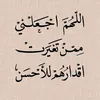 اللهُمَّ اجْعَلْنِي
مِمَّنْ تَغَيَّرَتْ
أَقْدَارُهُمْ لِلْأَحْسَنِ